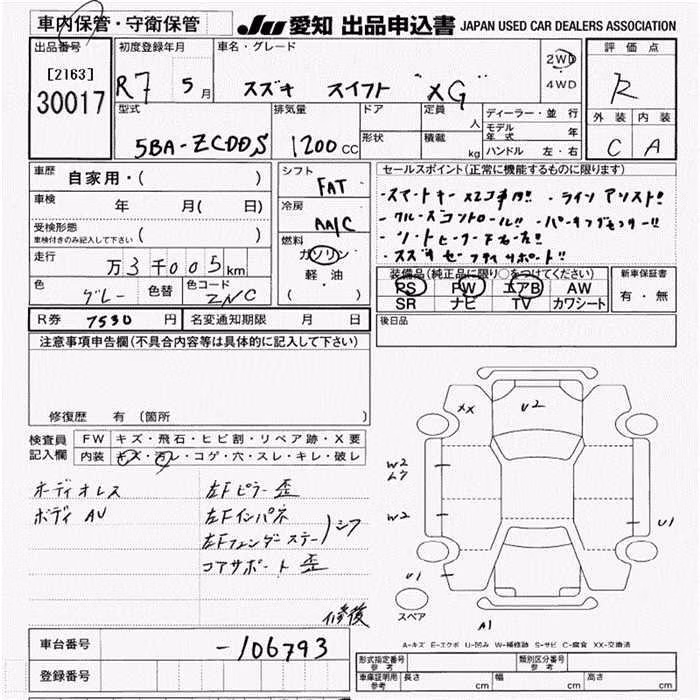 車内保管・守衛保管
JU 愛知 出品申込書 JAPAN USED CAR DEALERS ASSOCIATION
出品番号
[2163]
30017
初度登録年月
R7 5月
車名・グレード
スズキ スイフト "XG"
2WD
4WD
評価点
R
外装 内装
C A
型式
5BA-ZCDDS
排気量
1200cc
ドア
形状
定員
人
積載
kg
ディーラー・並行
モデル年式 年
ハンドル 左・右
車歴
自家用・( )
車検
年 月( 日)
受検形態
車検付きのみ記入して下さい ( )
走行
万3千005km
色
グレー
色替
色コード
ZNC
シフト
FAT
冷房
AA/C
燃料
ガソリン
軽油
( ・ )
セールスポイント(正常に機能するものに限ります)
・スマートキー×2コ有り!! ・ライン アシスト!!
・クルーズコントロール!! ・パーキングセンサー!!
・シートヒーター左右!!
・スズキ セーフティサポート!!
装備品(純正品に限り○をつけてください)
PS PW エアB AW
SR ナビ TV カワシート
新車保証書
有・無
R券 7530円 名変通知期限 月 日
後日品
注意事項申告欄(不具合内容等は具体的に記入して下さい)
修復歴 有 (箇所 )
検査員記入欄
FW キズ・飛石・ヒビ割・リペア跡・X要
内装 キズ・汚レ・コゲ・穴・スレ・キレ・破レ
ボーディオレス
ボディ AU
左Fピラー歪
左Fインパネ
左Fフェンダーステー
シフ
コアサポート歪
修復
XX
U2
W2
W2
U1
U1
A1
スペア
A-キズ E-エクボ U-凹み W-補修跡 S-サビ C-腐食 XX-交換済
車台番号
-106793
登録番号
形式指定番号
参考
類別区分番号
参考
車庫証明用
参考
長さ cm 幅 cm 高さ cm